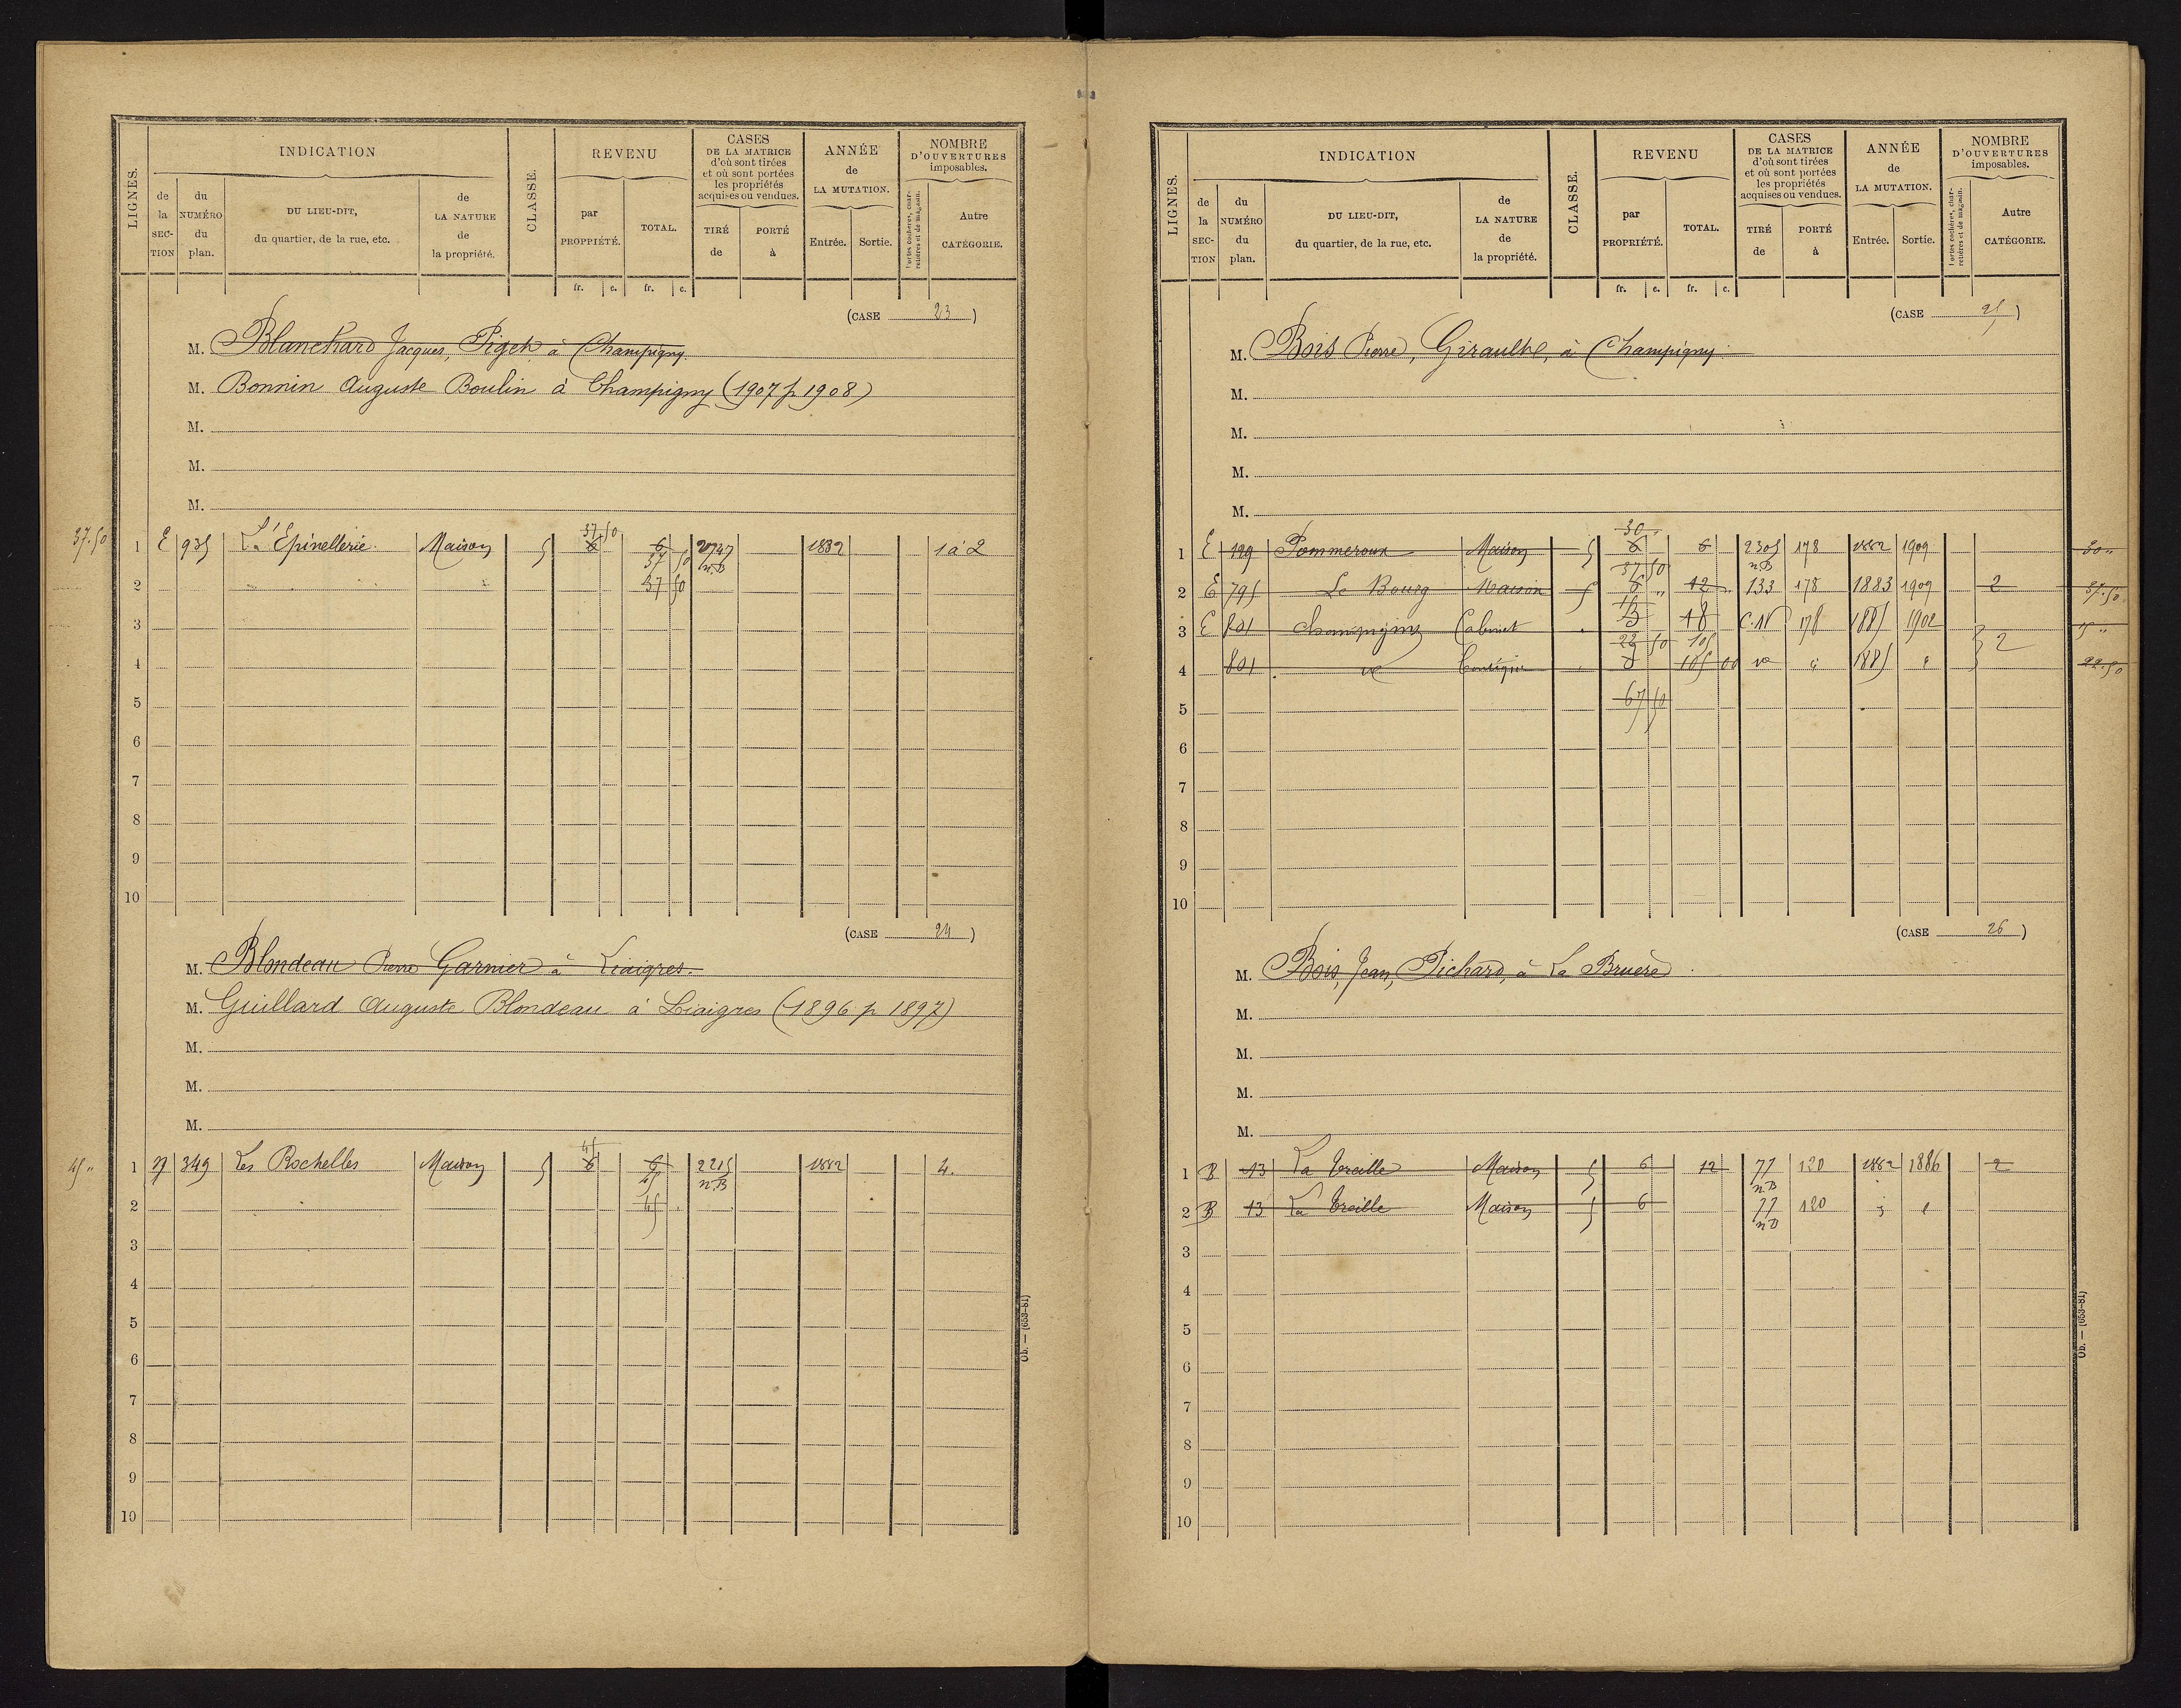 LIGNES.
INDICATION
de la SECTION
du NUMÉRO du plan.
DU LIEU-DIT, du quartier, de la rue, etc.
de LA NATURE de la propriété.
CLASSE.
REVENU
par PROPRIÉTÉ.
TOTAL.
CASES DE LA MATRICE d'où sont tirées et où sont portées les propriétés acquises ou vendues.
TIRÉ de
PORTÉ à
ANNÉE de LA MUTATION.
Entrée.
Sortie.
NOMBRE D'OUVERTURES imposables.
Portes cochères, charretières et de magasin.
Autre CATÉGORIE.
fr. c. fr. c.
(CASE 23)
M. Blanchard Jacques, Piget à Champigny.
M. Bonnin Auguste Boulin à Champigny (1907 p 1908)
M.
M.
M.
37.50 1 E 935 L'Epinellerie. Maison 5 37 50 6 6 1882 1 à 2
n.B
37 50
2 37 50
3
4
5
6
7
8
9
10
(CASE 24)
M. Blondeau Pierre Garnier à Liaigres.
M. Guillard Auguste Blondeau à Liaigres (1896 p 1897)
M.
M.
M.
45 " 1 349 Les Rochelles Maison 5 45 6 6 2215 1882 4.
45 n.B
2 45
3
4
5
6
7
8
9
10
Ob. — (653-81)
LIGNES.
INDICATION
de la SECTION
du NUMÉRO du plan.
DU LIEU-DIT, du quartier, de la rue, etc.
de LA NATURE de la propriété.
CLASSE.
REVENU
par PROPRIÉTÉ.
TOTAL.
CASES DE LA MATRICE d'où sont tirées et où sont portées les propriétés acquises ou vendues.
TIRÉ de
PORTÉ à
ANNÉE de LA MUTATION.
Entrée.
Sortie.
NOMBRE D'OUVERTURES imposables.
Portes cochères, charretières et de magasin.
Autre CATÉGORIE.
fr. c. fr. c.
(CASE 25)
M. Bois Pierre, Girault, à Champigny.
M.
M.
M.
M.
30 "
1 E 129 Pommeroux Maison 5 6 6 2305 178 1882 1909 30 "
37 50 n.B
2 E 795 Le Bourg Maison 5 6 " 12 " 133 178 1883 1909 2 37.50
15
3 E 801 Champigny Cabinet 18 C.N 178 1885 1902 15 "
22 50 105 2
4 801 Contigu 105 00 1885 22.50
5 67 50
6
7
8
9
10
(CASE 26)
M. Bois, Jean, Pichard, à La Bruère.
M.
M.
M.
M.
1 B 13 La Treille Maison 5 6 12 77 120 1882 1886 2
n.B
2 B 13 La Treille Maison 5 6 77 120
n.B
3
4
5
6
7
8
9
10
Ob. — (653-81)